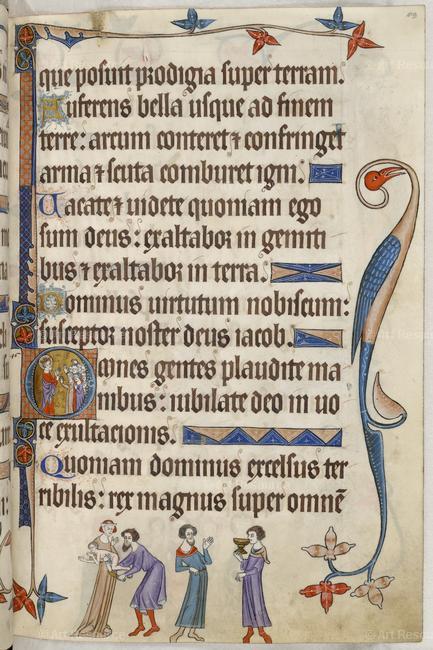 89
que posuit prodigia super terram.
Auferens bella usque ad finem
terre: arcum conteret ⁊ confringet
arma ⁊ scuta comburet igni.
Uacate ⁊ uidete quoniam ego
sum deus: exaltabor in genti
bus ⁊ exaltabor in terra.
Dominus uirtutum nobiscum:
susceptor noster deus iacob.
Omnes gentes plaudite ma
nibus: iubilate deo in uo
ce exultacionis.
Quoniam dominus excelsus ter
ribilis: rex magnus super omnē